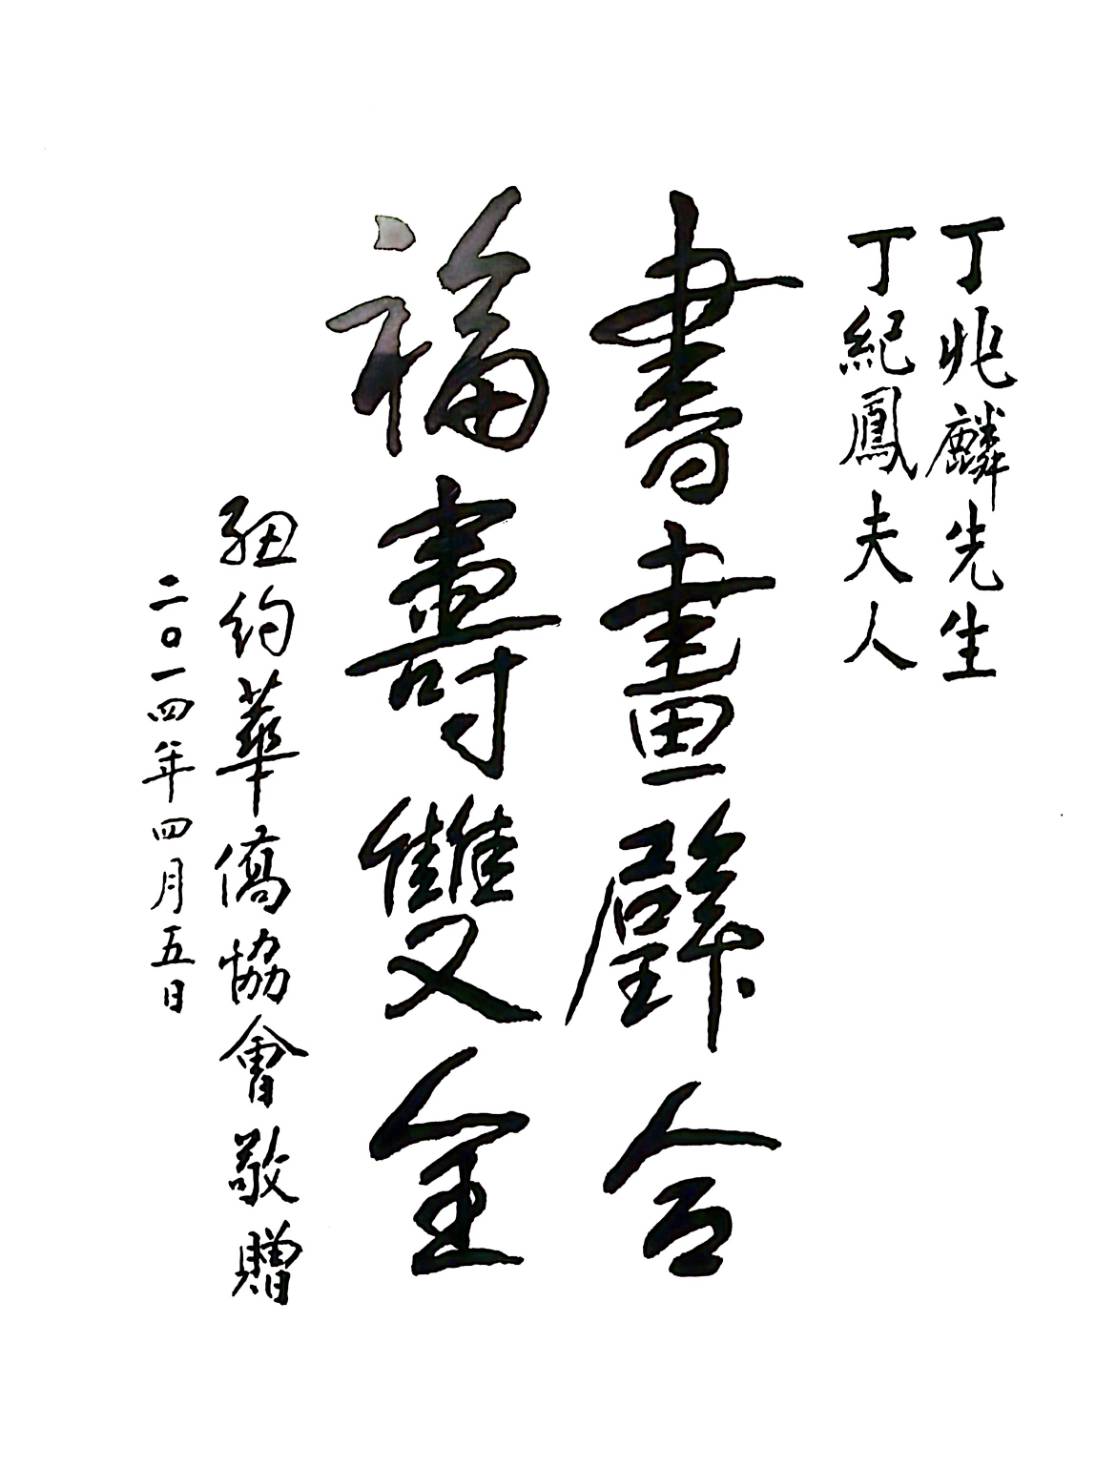 丁兆麟先生
丁紀鳳夫人
書畫璧合
福壽雙全
紐約華僑協會敬贈
二〇一四年四月五日